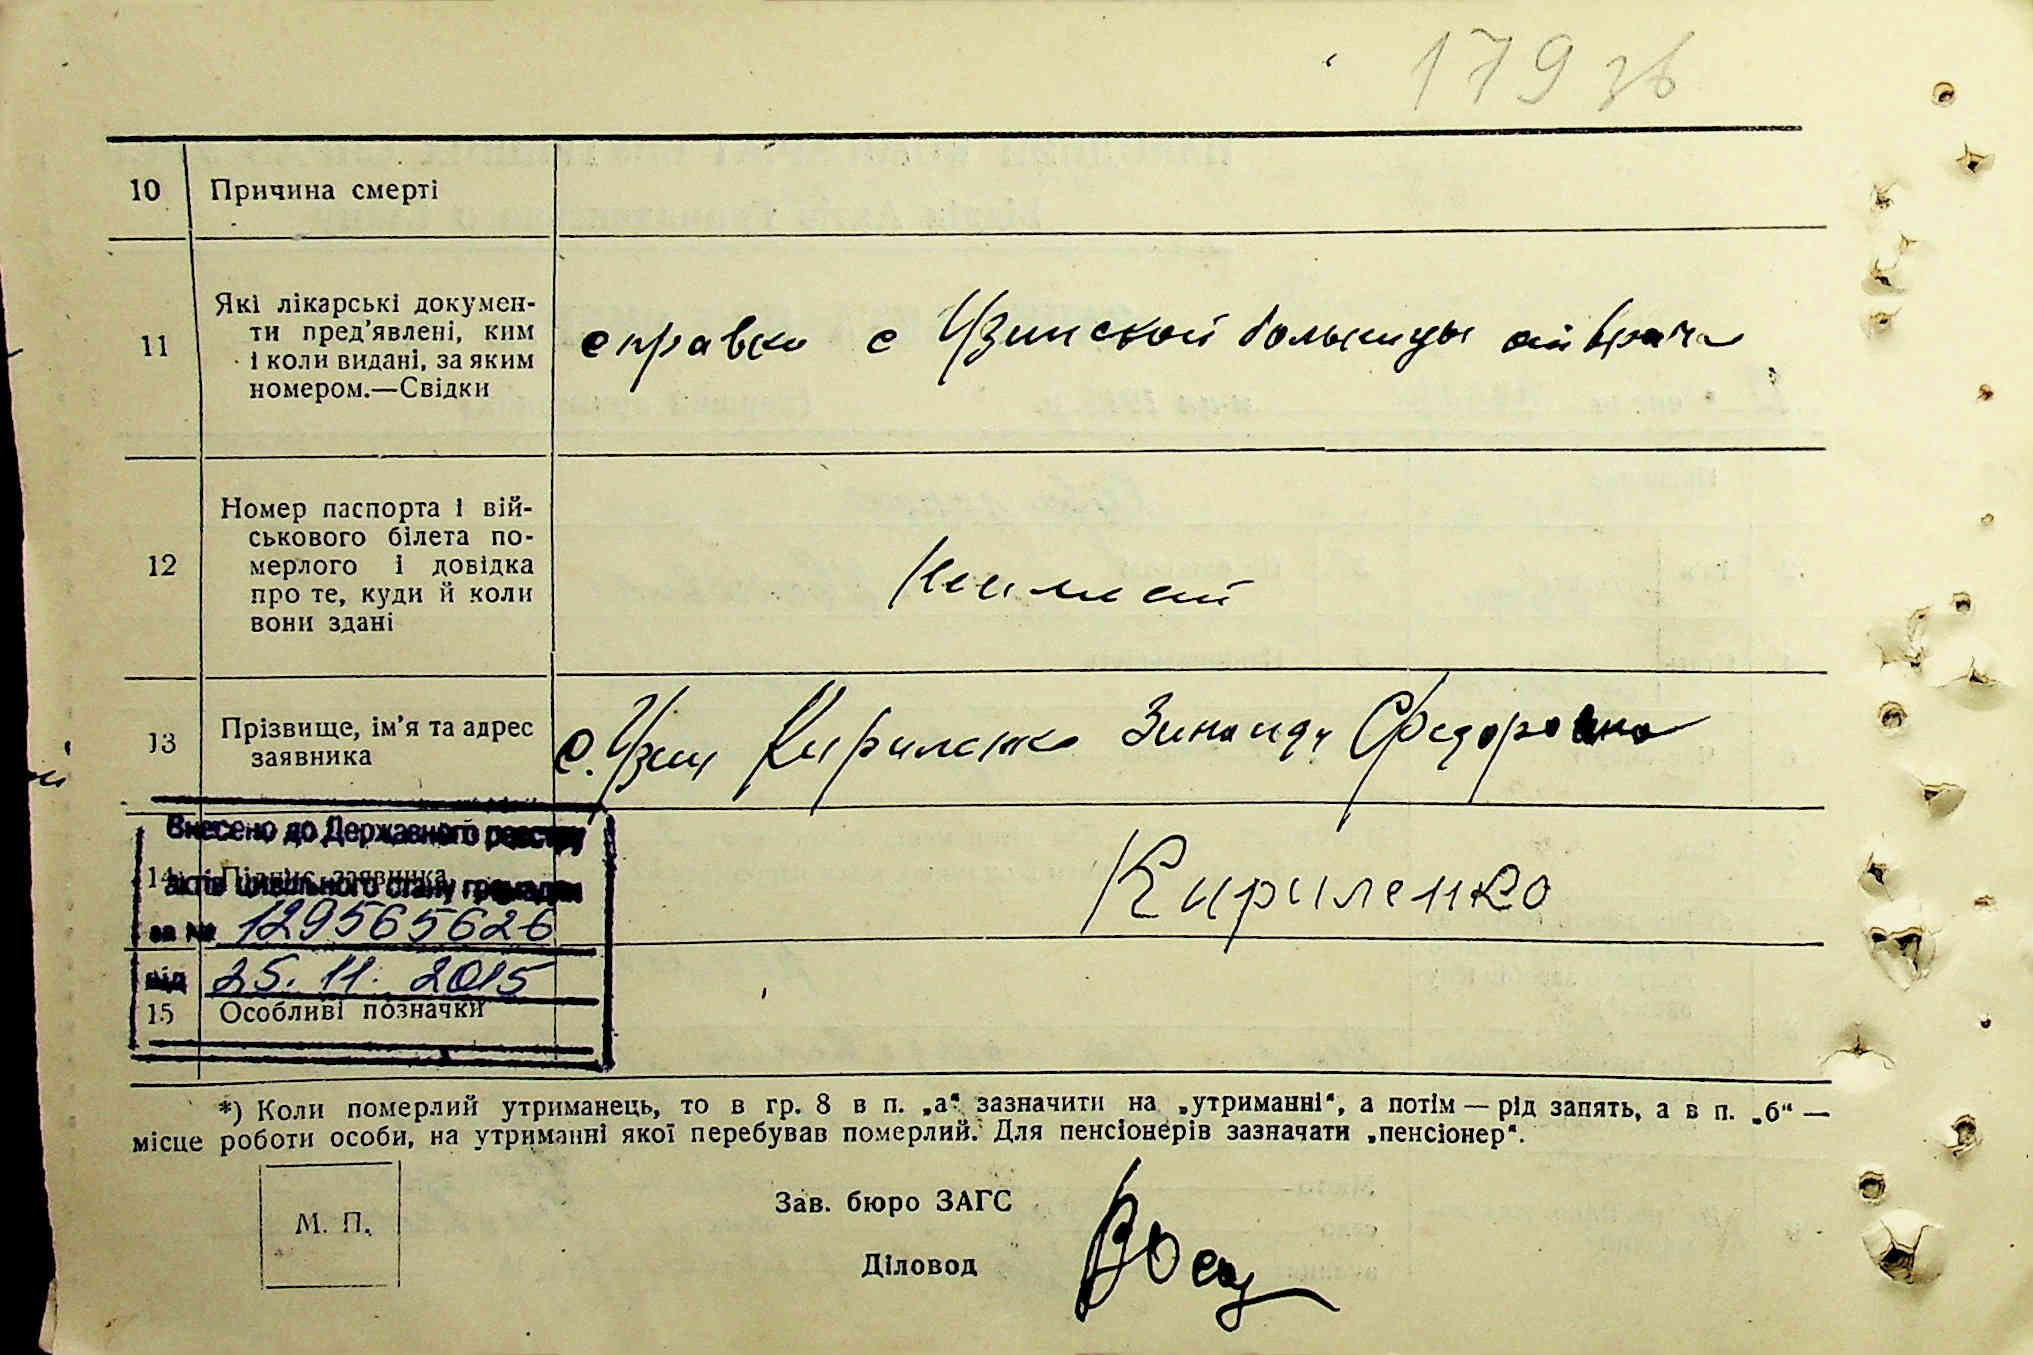 179 зв
10 Причина смерті
11 Які лікарські докумен-
ти пред'явлені, ким
і коли видані, за яким
номером.—Свідки
справка с Узинской больницы от врача
12 Номер паспорта і вій-
ськового білета по-
мерлого і довідка
про те, куди й коли
вони здані
13 Прізвище, ім'я та адрес
заявника
с. Узин Кириленко Зинаида Федоровна
Внесено до Державного реєстру
14 Підпис заявника
Кириленко
актів цивільного стану громадян
за № 129565626
від 25. 11. 2015
15 Особливі позначки
*) Коли померлий утриманець, то в гр. 8 в п. „а“ зазначити на „утриманні“, а потім — рід занять, а в п. „б“ —
місце роботи особи, на утриманні якої перебував померлий. Для пенсіонерів зазначати „пенсіонер“.
М. П.
Зав. бюро ЗАГС
Діловод